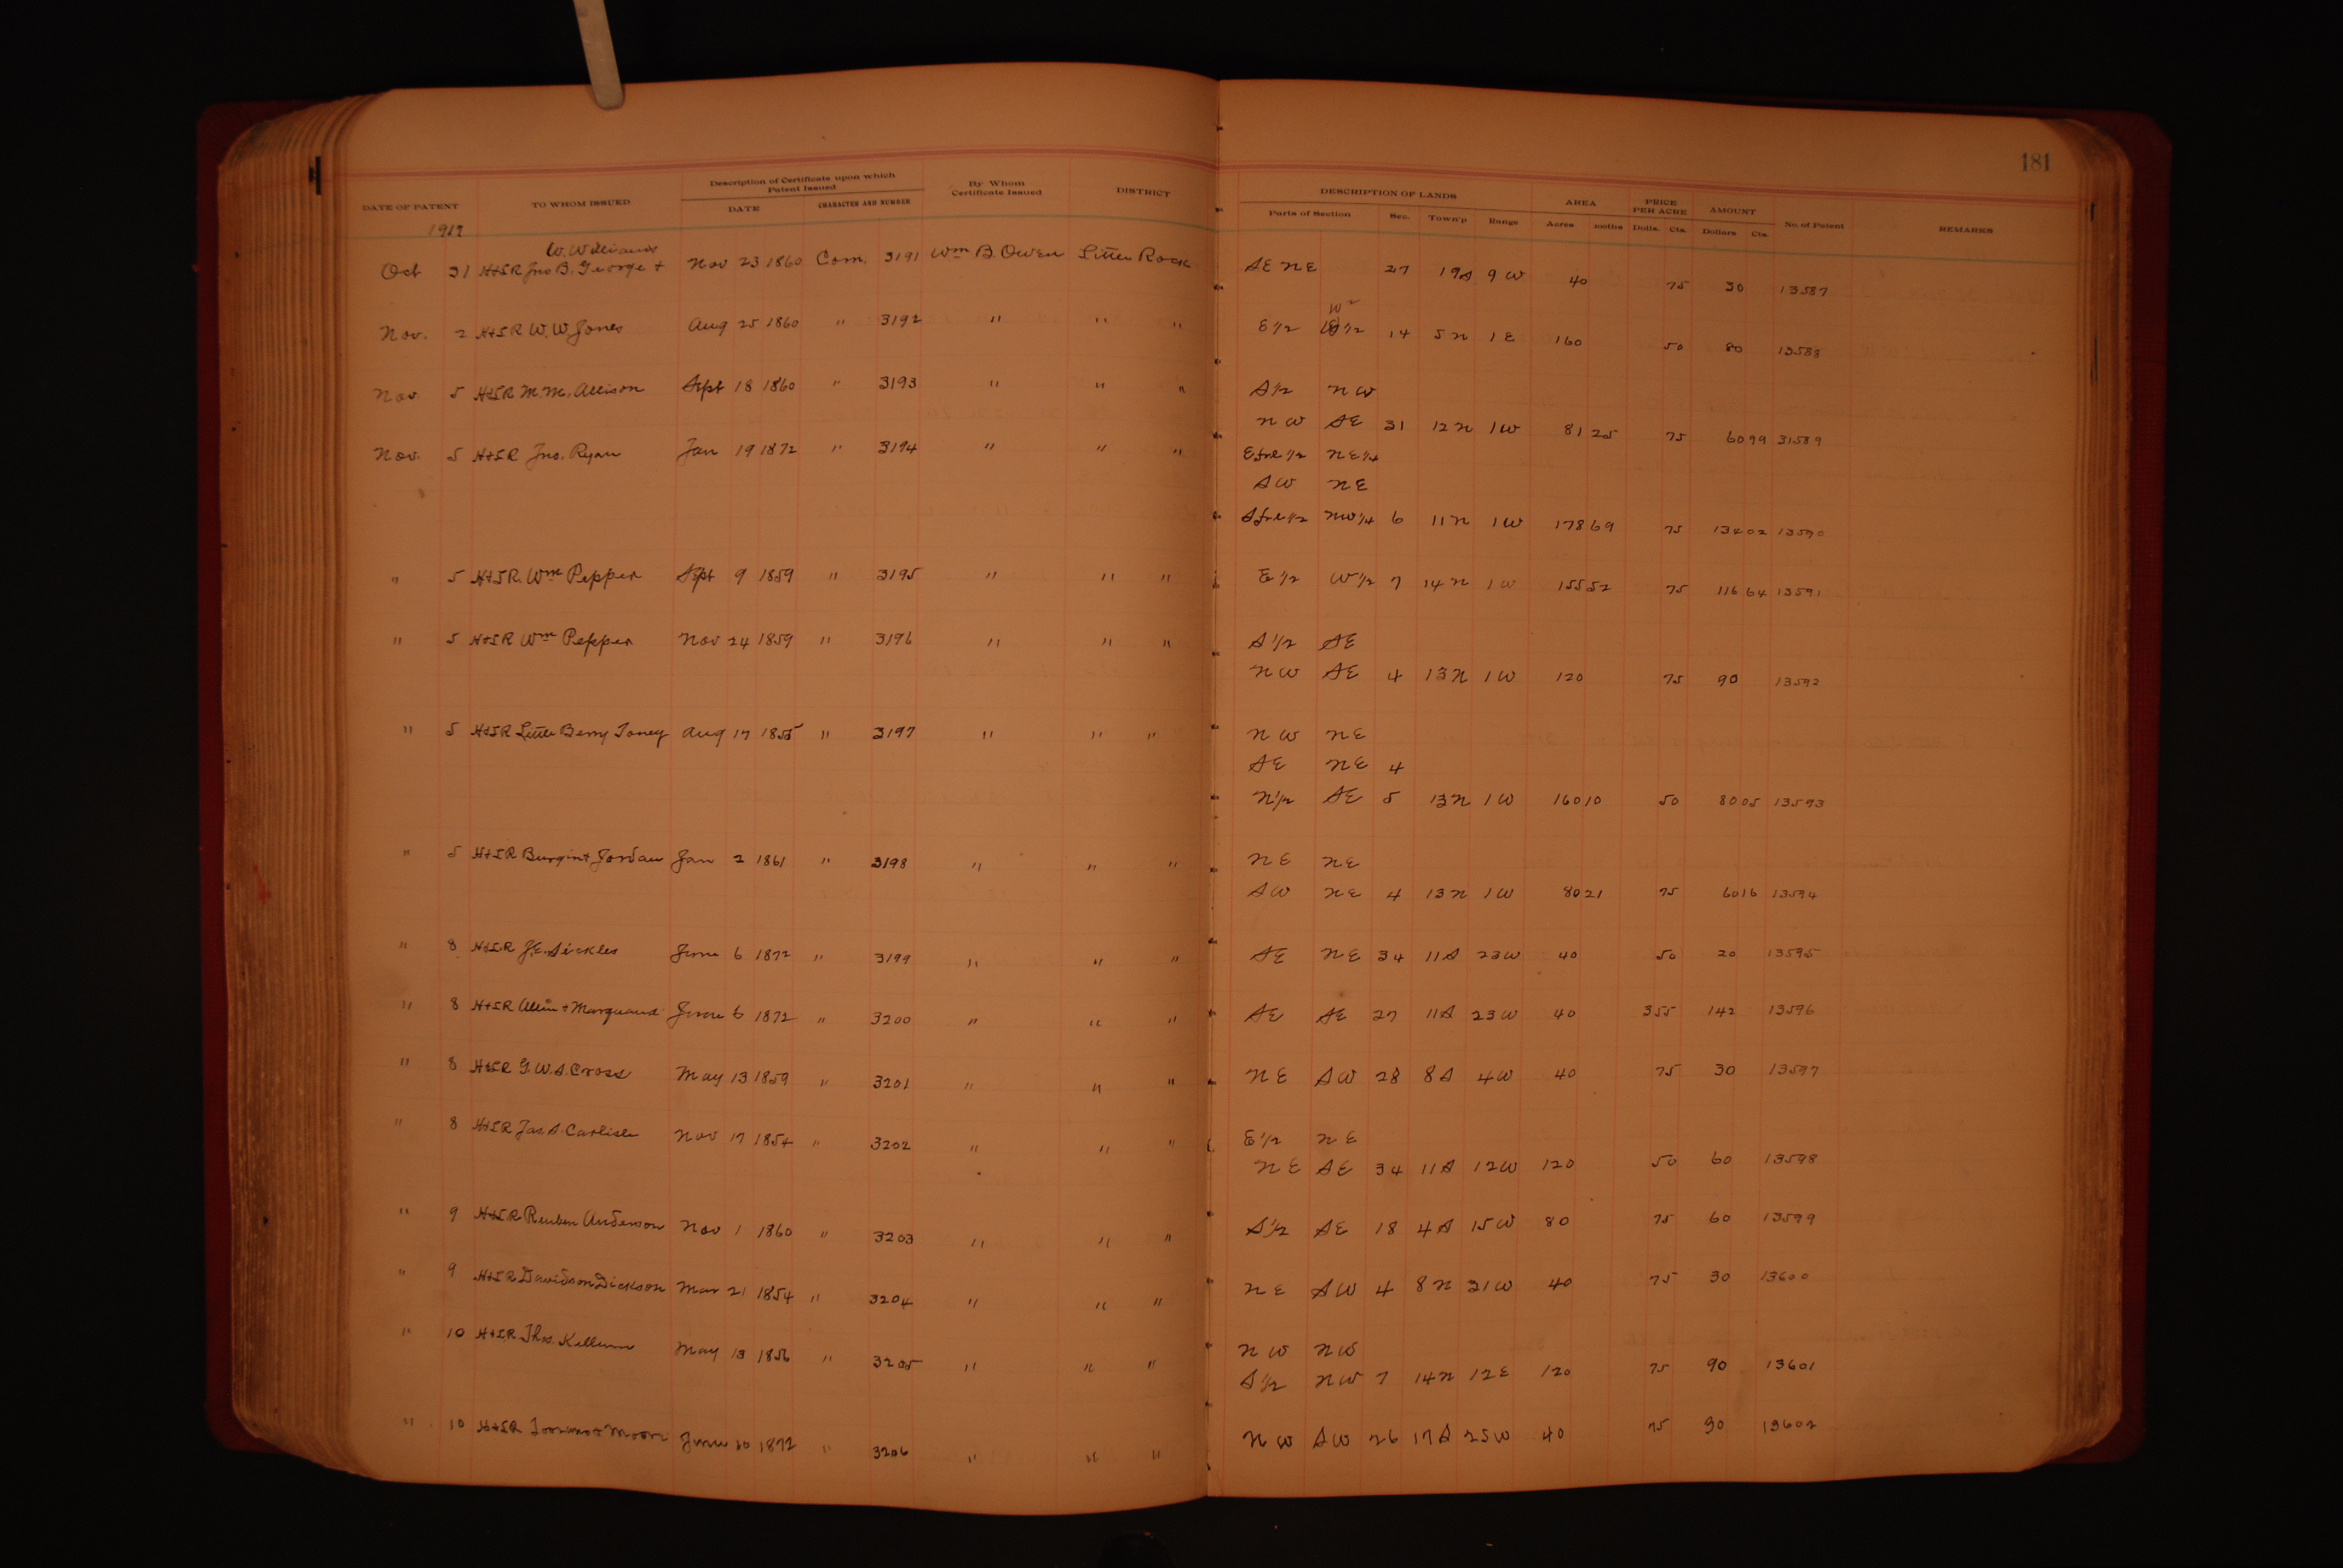 181
DATE OF PATENT TO WHOM ISSUED Description of Certificate upon which Patent Issued DATE CHARACTER AND NUMBER By Whom Certificate Issued DISTRICT DESCRIPTION OF LANDS Parts of Section Sec. Town'p Range AREA Acres 100ths PRICE PER ACRE Dolls. Cts. AMOUNT Dollars Cts. No. of Patent REMARKS
1917
W. Williams
Oct 31 H+SR Jno B. George + Nov 23 1860 Com. 3191 Wm B. Owen Little Rock SE NE 27 19S 9W 40 75 30 13587
W
Nov. 2 H+SR W. W. Jones Aug 25 1860 " 3192 " " " E 1/2 1/2 14 5N 1E 160 50 80 13588
Nov. 5 H+SR M. M. Allison Sept 18 1860 " 3193 " " " S 1/2 NW
NW SE 31 12N 1W 81 25 75 60 99 31589
Nov. 5 H+SR Jno. Ryan Jan 19 1872 " 3194 " " " E frl 1/2 NE 1/4
SW NE
S frl 1/2 NW 1/4 6 11N 1W 178 69 75 134 02 13590
" 5 H+SR. Wm Pepper Sept 9 1859 " 3195 " " " E 1/2 W 1/2 7 14N 1W 155 52 75 116 64 13591
" 5 H+SR Wm Pepper Nov 24 1859 " 3196 " " " S 1/2 SE
NW SE 4 13N 1W 120 75 90 13592
" 5 H+SR Little Berry Toney Aug 17 1855 " 3197 " " " NW NE
SE NE 4
N 1/2 SE 5 13N 1W 160 10 50 80 05 13593
" 5 H+SR Burgin + Jordan Jan 2 1861 " 3198 " " " NE NE
SW NE 4 13N 1W 80 21 75 60 16 13594
" 8 H+SR J. E. Sickles June 6 1872 " 3199 " " " SE NE 34 11S 23W 40 50 20 13595
" 8 H+SR Allin + Marquand June 6 1872 " 3200 " " " SE SE 27 11S 23W 40 3 55 142 13596
" 8 H+SR G. W. S. Cross May 13 1859 " 3201 " " " NE SW 28 8S 4W 40 75 30 13597
" 8 H+SR Jas S. Carlisle Nov 17 1854 " 3202 " " " E 1/2 NE
NE SE 34 11S 12W 120 50 60 13598
" 9 H+SR Reuben Anderson Nov 1 1860 " 3203 " " " S 1/2 SE 18 4S 15W 80 75 60 13599
" 9 H+SR Davidson Dickson Mar 21 1854 " 3204 " " " NE SW 4 8N 31W 40 75 30 13600
" 10 H+SR Thos. Kellum May 13 1856 " 3205 " " " NW NW
S 1/2 NW 7 14N 12E 120 75 90 13601
" 10 H+SR + Moore June 1872 " 3206 " " " NW SW 26 17S 25W 40 75 30 13602